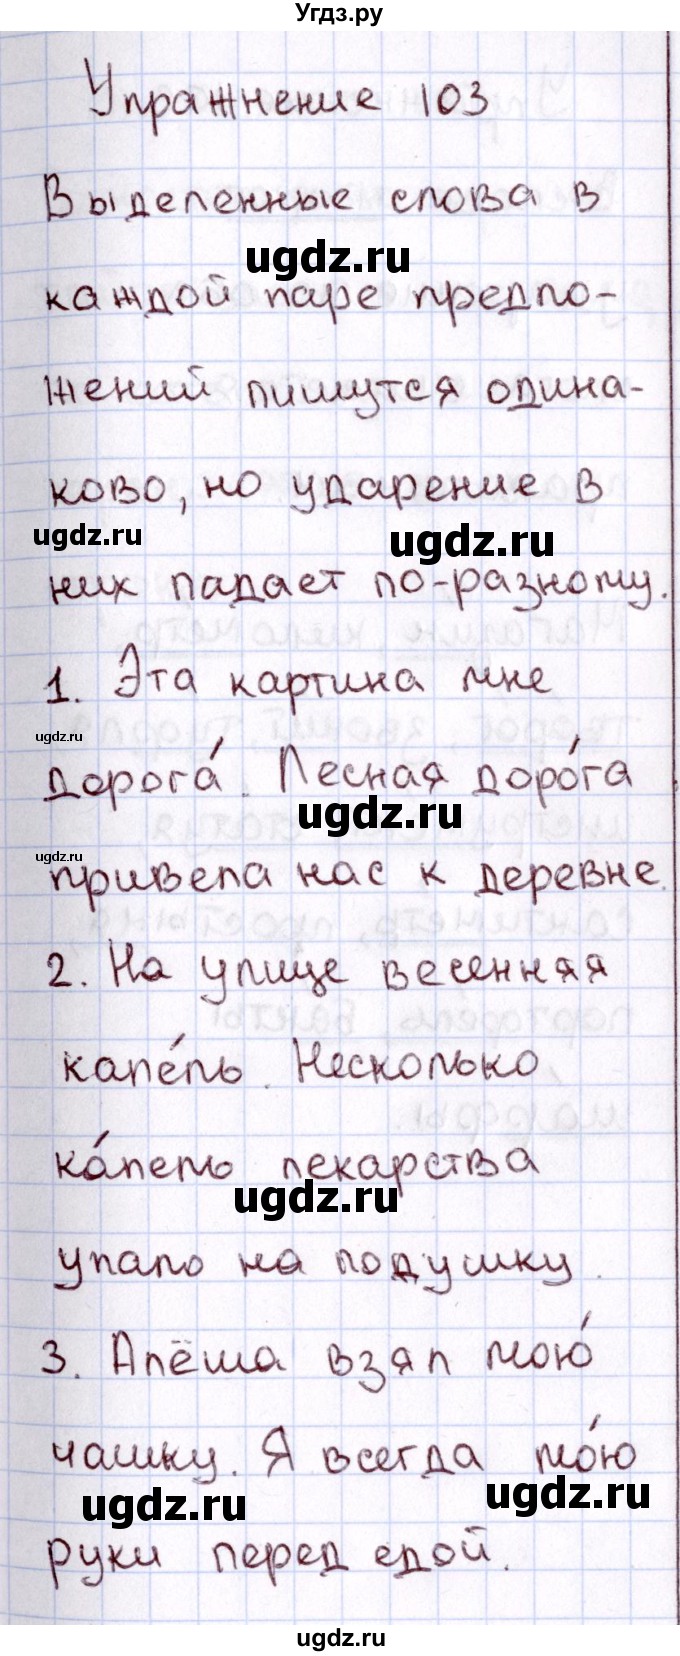 Угдз.ру
Упражнение 103
Выделенные слова в
ugdz.ru
каждой паре предло-
жений пишутся одина-
ково, но ударение в
ugdz.ru ugdz.ru
них падает по-разному.
1. Эта картина мне
ugdz.ru
дорога́. Лесная доро́га
ugdz.ru
ugdz.ru
привела нас к деревне.
2. На улице весенняя
капе́ль. Несколько
ка́пель лекарства
ugdz.ru
упало на подушку.
3. Алёша взял мою́
чашку. Я всегда мо́ю
ugdz.ru ugdz.ru
руки перед едой.
ugdz.ru